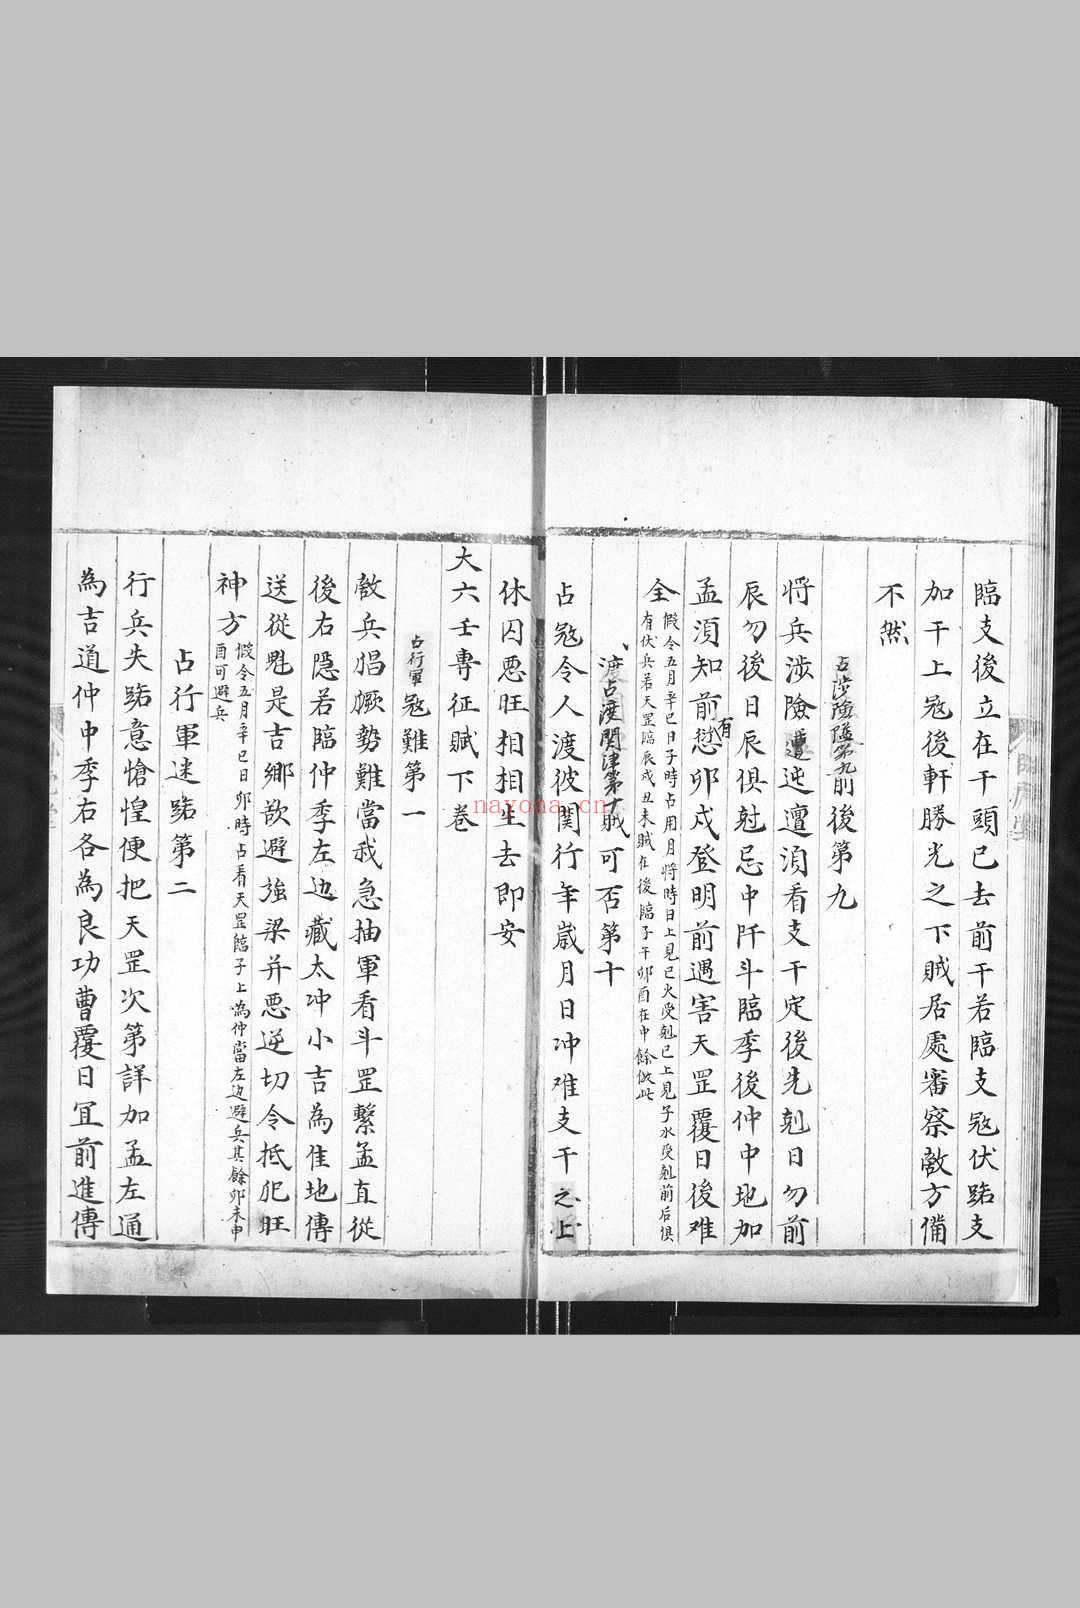 臨支後立在干頭已去前干若臨支冦伏路支
加干上冦後軒勝光之下賊居處審察敵方備
不然
占涉險隘第九前後第九
將兵涉險遭迍邅湏看支干定後先剋日勿前
辰勿後日辰俱尅忌中阡斗臨季後仲中地加
孟湏知前有愆卯戌登明前遇害天罡覆日後难
全假令五月辛巳日子時占用月將時日上見巳火受剋巳上見子水受剋前后俱
有伏兵若天罡臨辰戌丑未賊在後臨子午卯酉在中餘倣此
占渡関津第十賊可否第十
占冦令人渡彼関行年嵗月日冲难支干之上
休囚惡旺相相生去即安
大六壬專征賦下卷
占行軍冦難第一
敵兵猖蹶勢難當我急抽軍看斗罡繫孟直從
後右隱若臨仲季左边藏太冲小吉為佳地傳
送從魁是吉鄉欲避強梁并惡逆切令抵犯旺
神方假令五月辛巳日卯時占看天罡臨子上為仲當左边避兵其餘卯未申
酉可避兵
占行軍迷路第二
行兵失路意愴惶便把天罡次第詳加孟左通
為吉道仲中季右各為良功曹覆日冝前進傳
nayona.cn